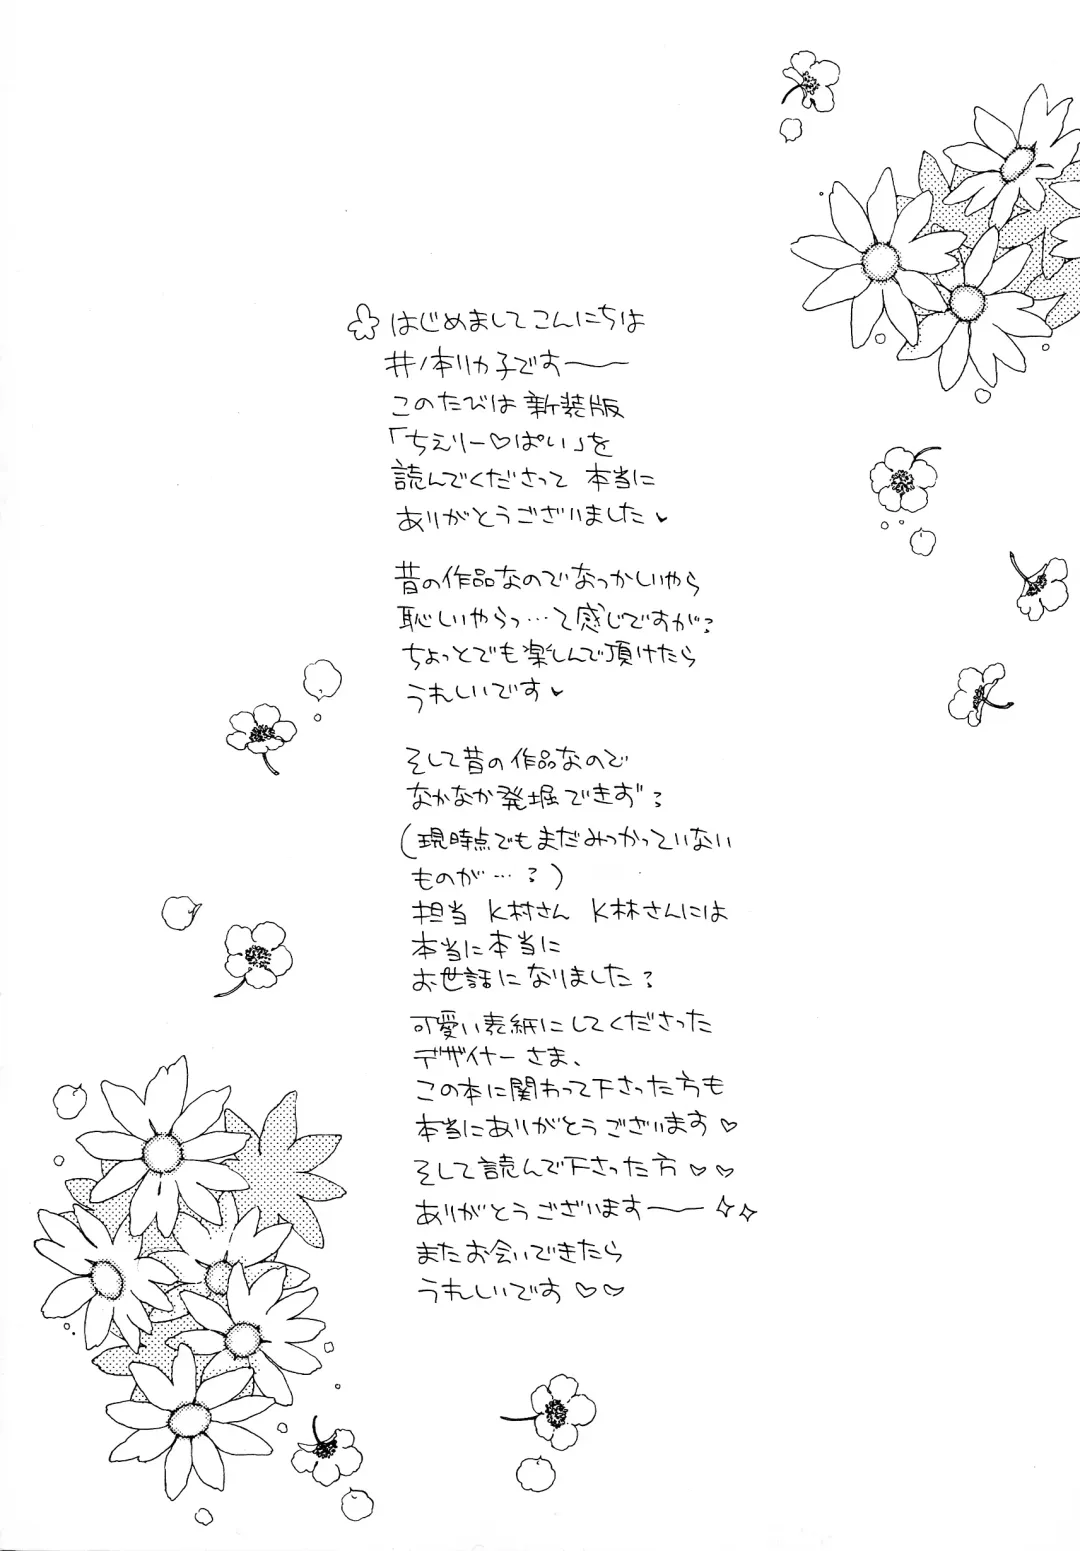 はじめましてこんにちは
井ノ本リカ子です〜〜
このたびは 新装版
「ちぇりー♡ぱい」を
読んでくださって 本当に
ありがとうございました♥
昔の作品なのでなつかしいやら
恥しいやらっ…て感じですが?
ちょっとでも楽しんで頂けたら
うれしいです♥
そして昔の作品なので
なかなか発掘できず?
(現時点でもまだみつかっていない
ものが…?)
担当 K村さん K林さんには
本当に本当に
お世話になりました?
可愛い表紙にしてくださった
デザイナーさま、
この本に関わって下さった方も
本当にありがとうございます♡
そして読んで下さった方♡♡
ありがとうございます〜〜✧✧
またお会いできたら
うれしいです♡♡